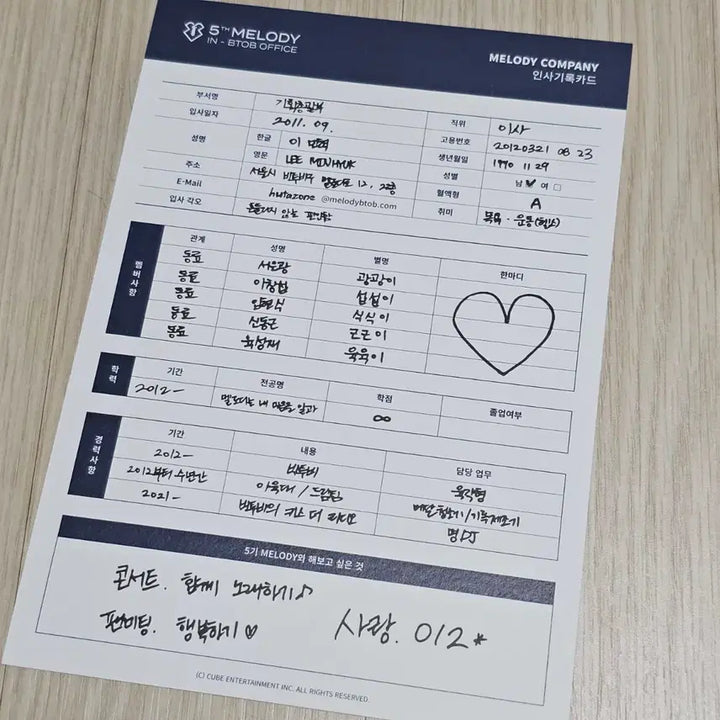 5TH MELODY
IN - BTOB OFFICE
MELODY COMPANY
인사기록카드
부서명 기획총괄부 직위 이사
입사일자 2011. 09. 고용번호 20120321 08 23
성명 한글 이 민혁 생년월일 1990 11 29
영문 LEE MINHYUK 성별 남 ✓ 여 □
주소 서울시 비투비구 멜로디로 12, 2층 혈액형 A
E-Mail hutazone @melodybtob.com 취미 목욕 · 운동(헬스)
입사 각오 흔들리지 않는 편안함
멤버사항 관계 성명 별명 한마디
동료 서은광 광광이
동료 이창섭 섭섭이
동료 임현식 식식이
동료 신동근 근근이
동료 육성재 육육이
학력 기간 전공명 학점 졸업여부
2012- 멜로디는 내 마음을 알과 ∞
경력사항 기간 내용 담당 업무
2012- 비투비 육각형
2012부터 수년간 아육대 / 드림팀 메달청소기/기록제조기
2021- 비투비의 키스 더 라디오 명DJ
5기 MELODY와 해보고 싶은 것
콘서트. 함께 노래하기♪
팬미팅. 행복하기♡ 사랑. 012*
(C) CUBE ENTERTAINMENT INC. ALL RIGHTS RESERVED.